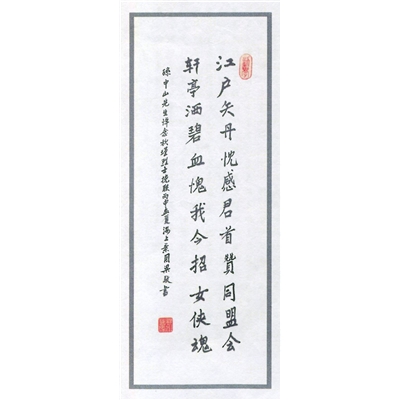 江户矢丹忱感君首贊同盟会
轩亭洒碧血愧我今招女侠魂
孫中山先生悼念秋瑾烈士挽联丙申夏書